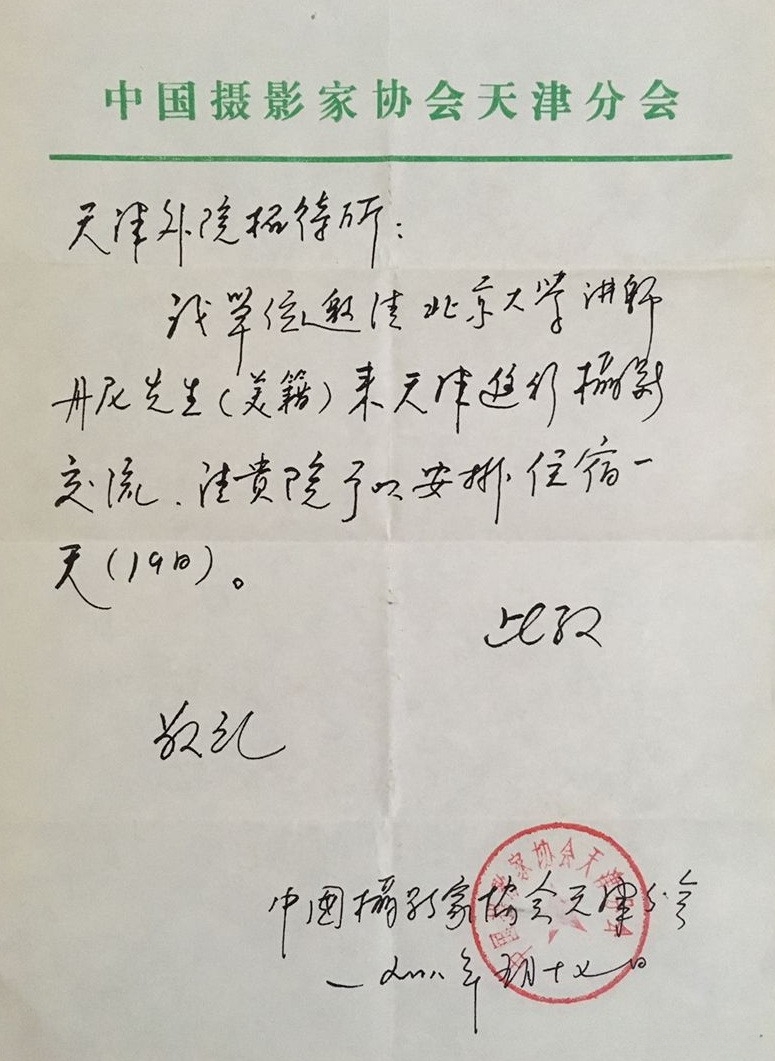 中国摄影家协会天津分会
天津外院招待所：
我单位邀请北京大学讲师
丹尼先生（美籍）来天津进行攝影
交流、请贵院予以安排住宿一
天（19日）。
此致
敬礼
中国攝影家协会天津分会
一九八八年五月十七日
中国摄影家协会天津分会